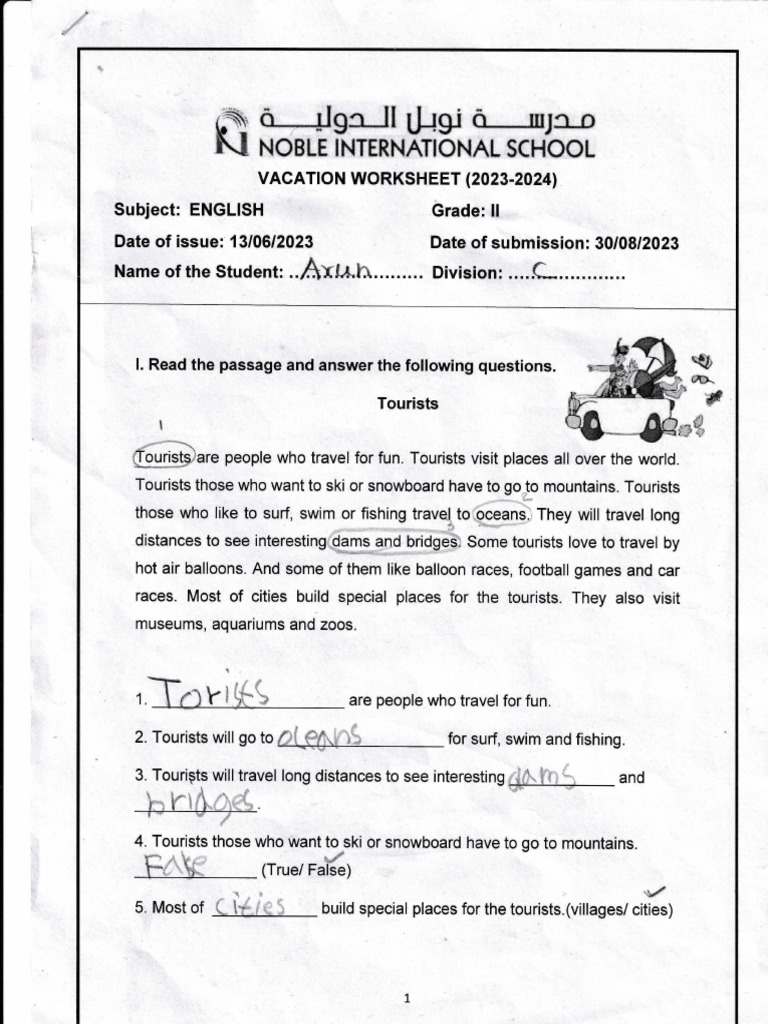 مدرسة نوبل الدولية
NOBLE INTERNATIONAL SCHOOL
VACATION WORKSHEET (2023-2024)
Subject: ENGLISH Grade: II
Date of issue: 13/06/2023 Date of submission: 30/08/2023
Name of the Student: ..Arun......... Division: .....C.............
I. Read the passage and answer the following questions.
Tourists
1
Tourists are people who travel for fun. Tourists visit places all over the world.
Tourists those who want to ski or snowboard have to go to mountains. Tourists
2
those who like to surf, swim or fishing travel to oceans. They will travel long
3
distances to see interesting dams and bridges. Some tourists love to travel by
hot air balloons. And some of them like balloon races, football games and car
races. Most of cities build special places for the tourists. They also visit
museums, aquariums and zoos.
1. Torists are people who travel for fun.
2. Tourists will go to oceans for surf, swim and fishing.
3. Tourists will travel long distances to see interesting dams and
bridges.
4. Tourists those who want to ski or snowboard have to go to mountains.
(True/ False)
5. Most of cities build special places for the tourists.(villages/ cities)
1